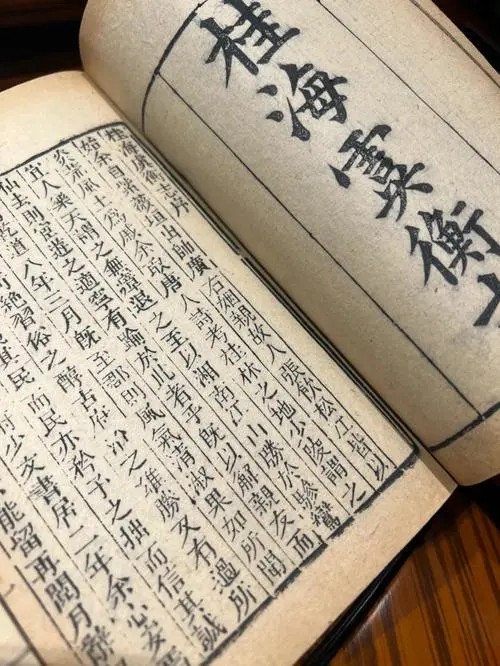 桂海虞衡
桂海虞衡志序
始余自紫薇垣出帥廣右姻親故人張飲松江皆以
炎荒風土爲戚余取唐人詩考桂林之地少陵謂之
宜人樂天謂之無瘴退之至以湘南江山勝於驂鸞
仙去則宦遊之適寧有踰於此者乎既以解親友而
乾道八年三月既至郡則風氣清淑果如所聞
絕習俗之醇古府治之雄勝又有過所
其民而民亦矜予之拙而信其誠
府少文書居二年余心安焉
能留再閱月辭